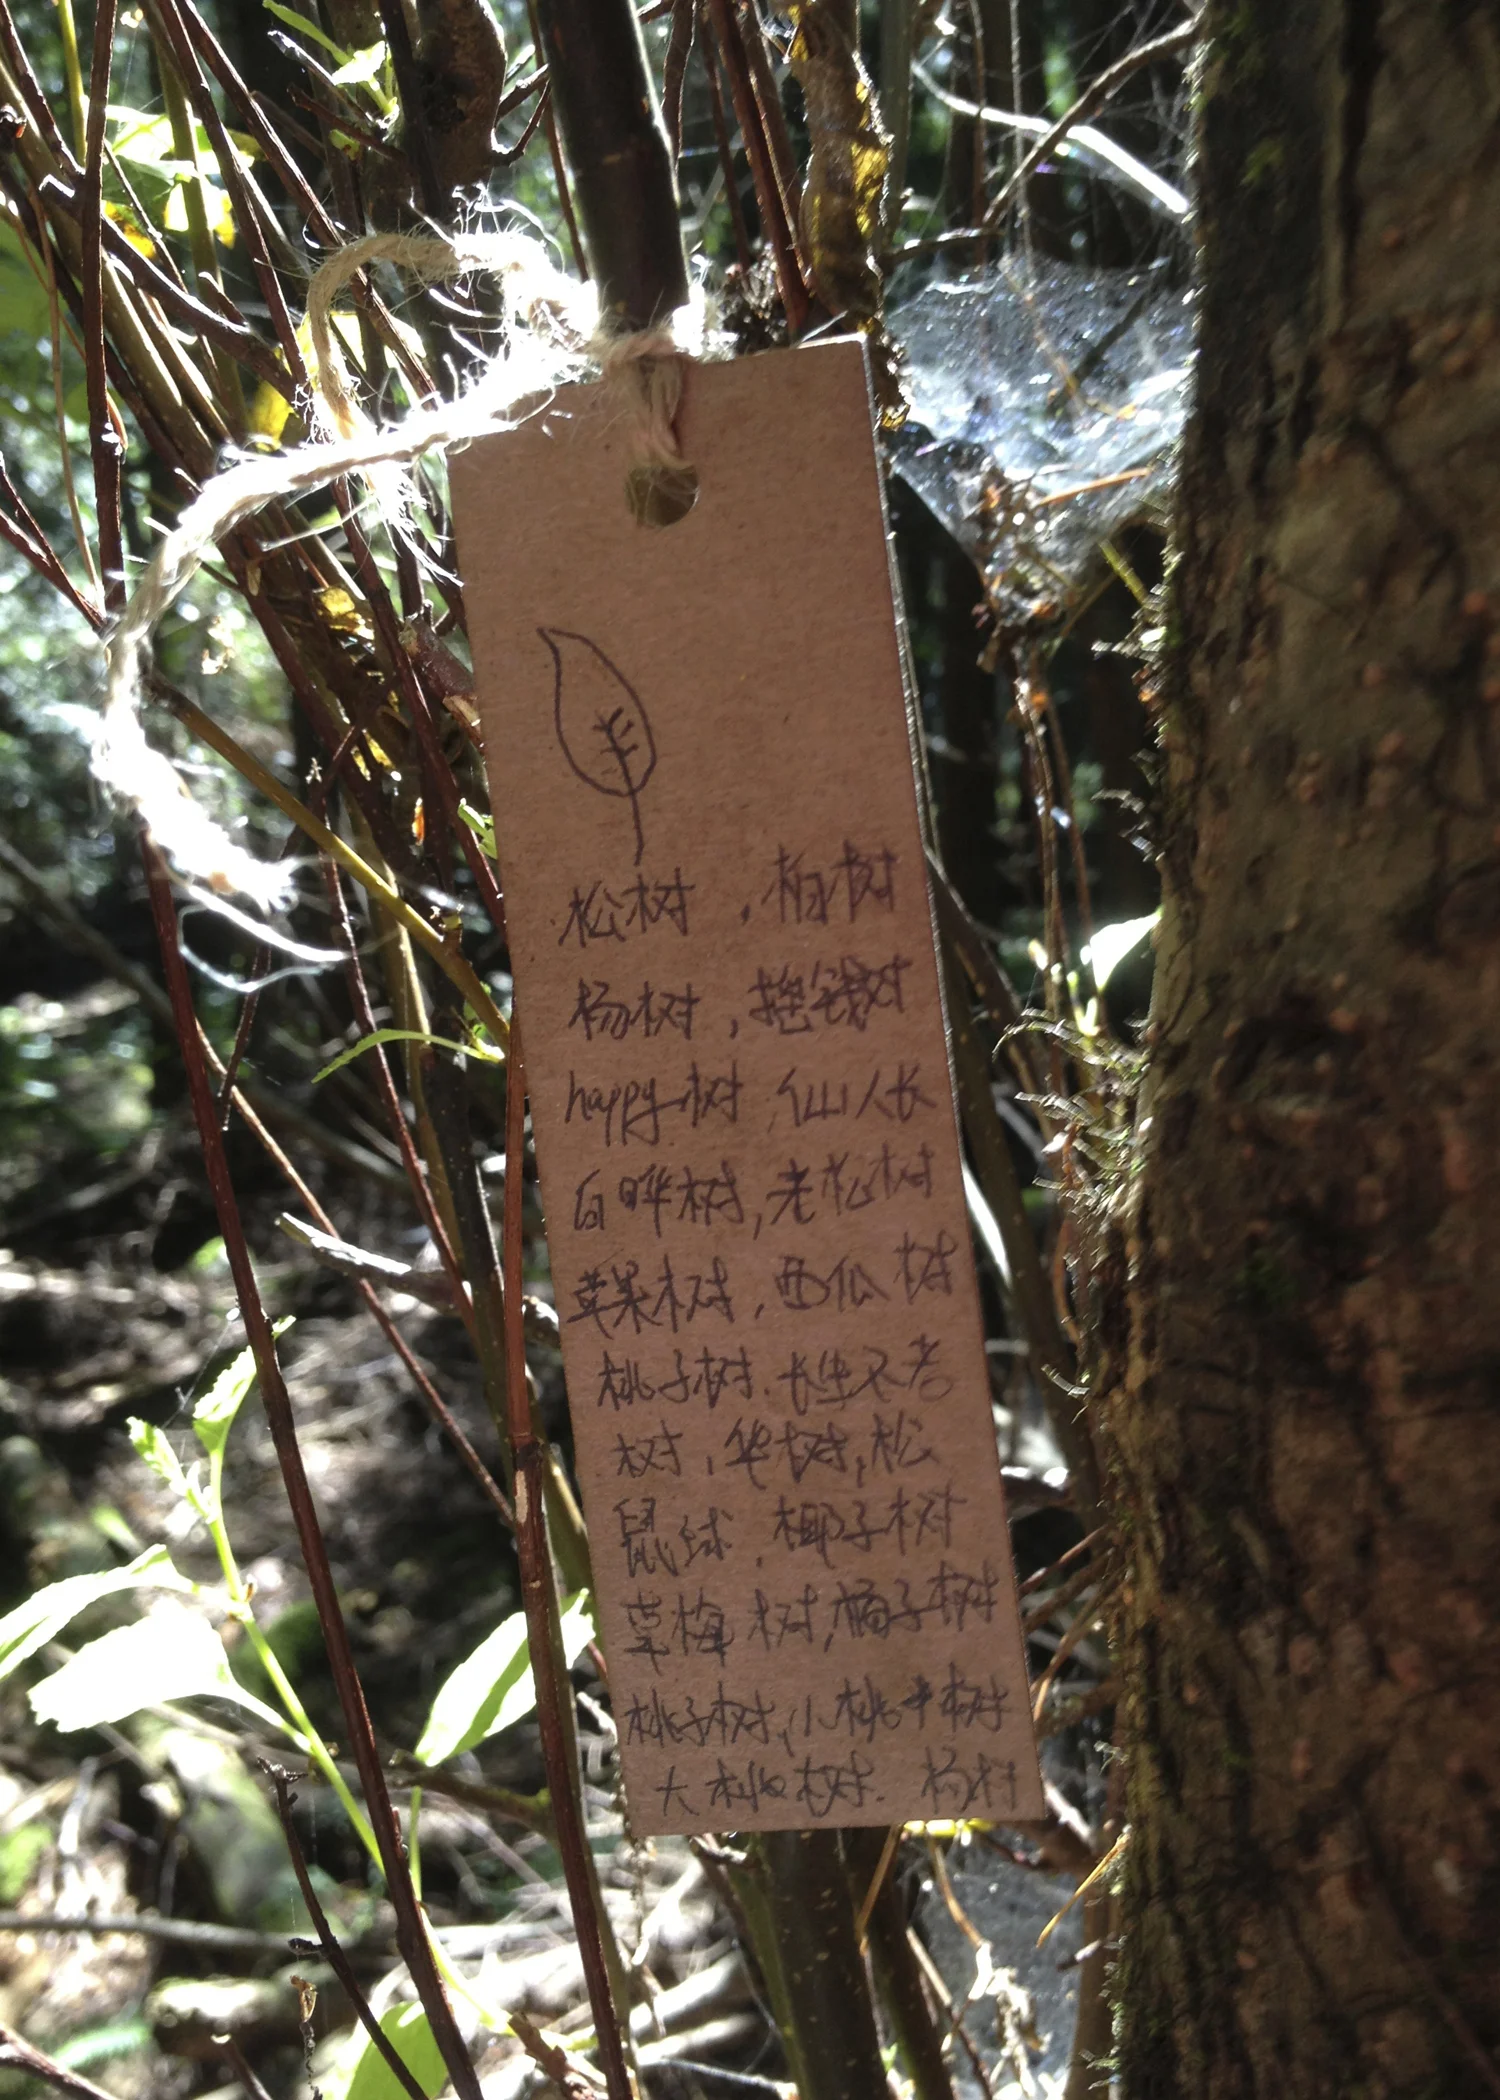 松树，柏树
杨树，摇钱树
happy树，仙人长
白晔树，老松树
苹果树，西瓜树
桃子树，长生不老
树，华树，松
鼠球，椰子树
草梅树，橘子树
桃子树，小桃子树
大桃树．杨树